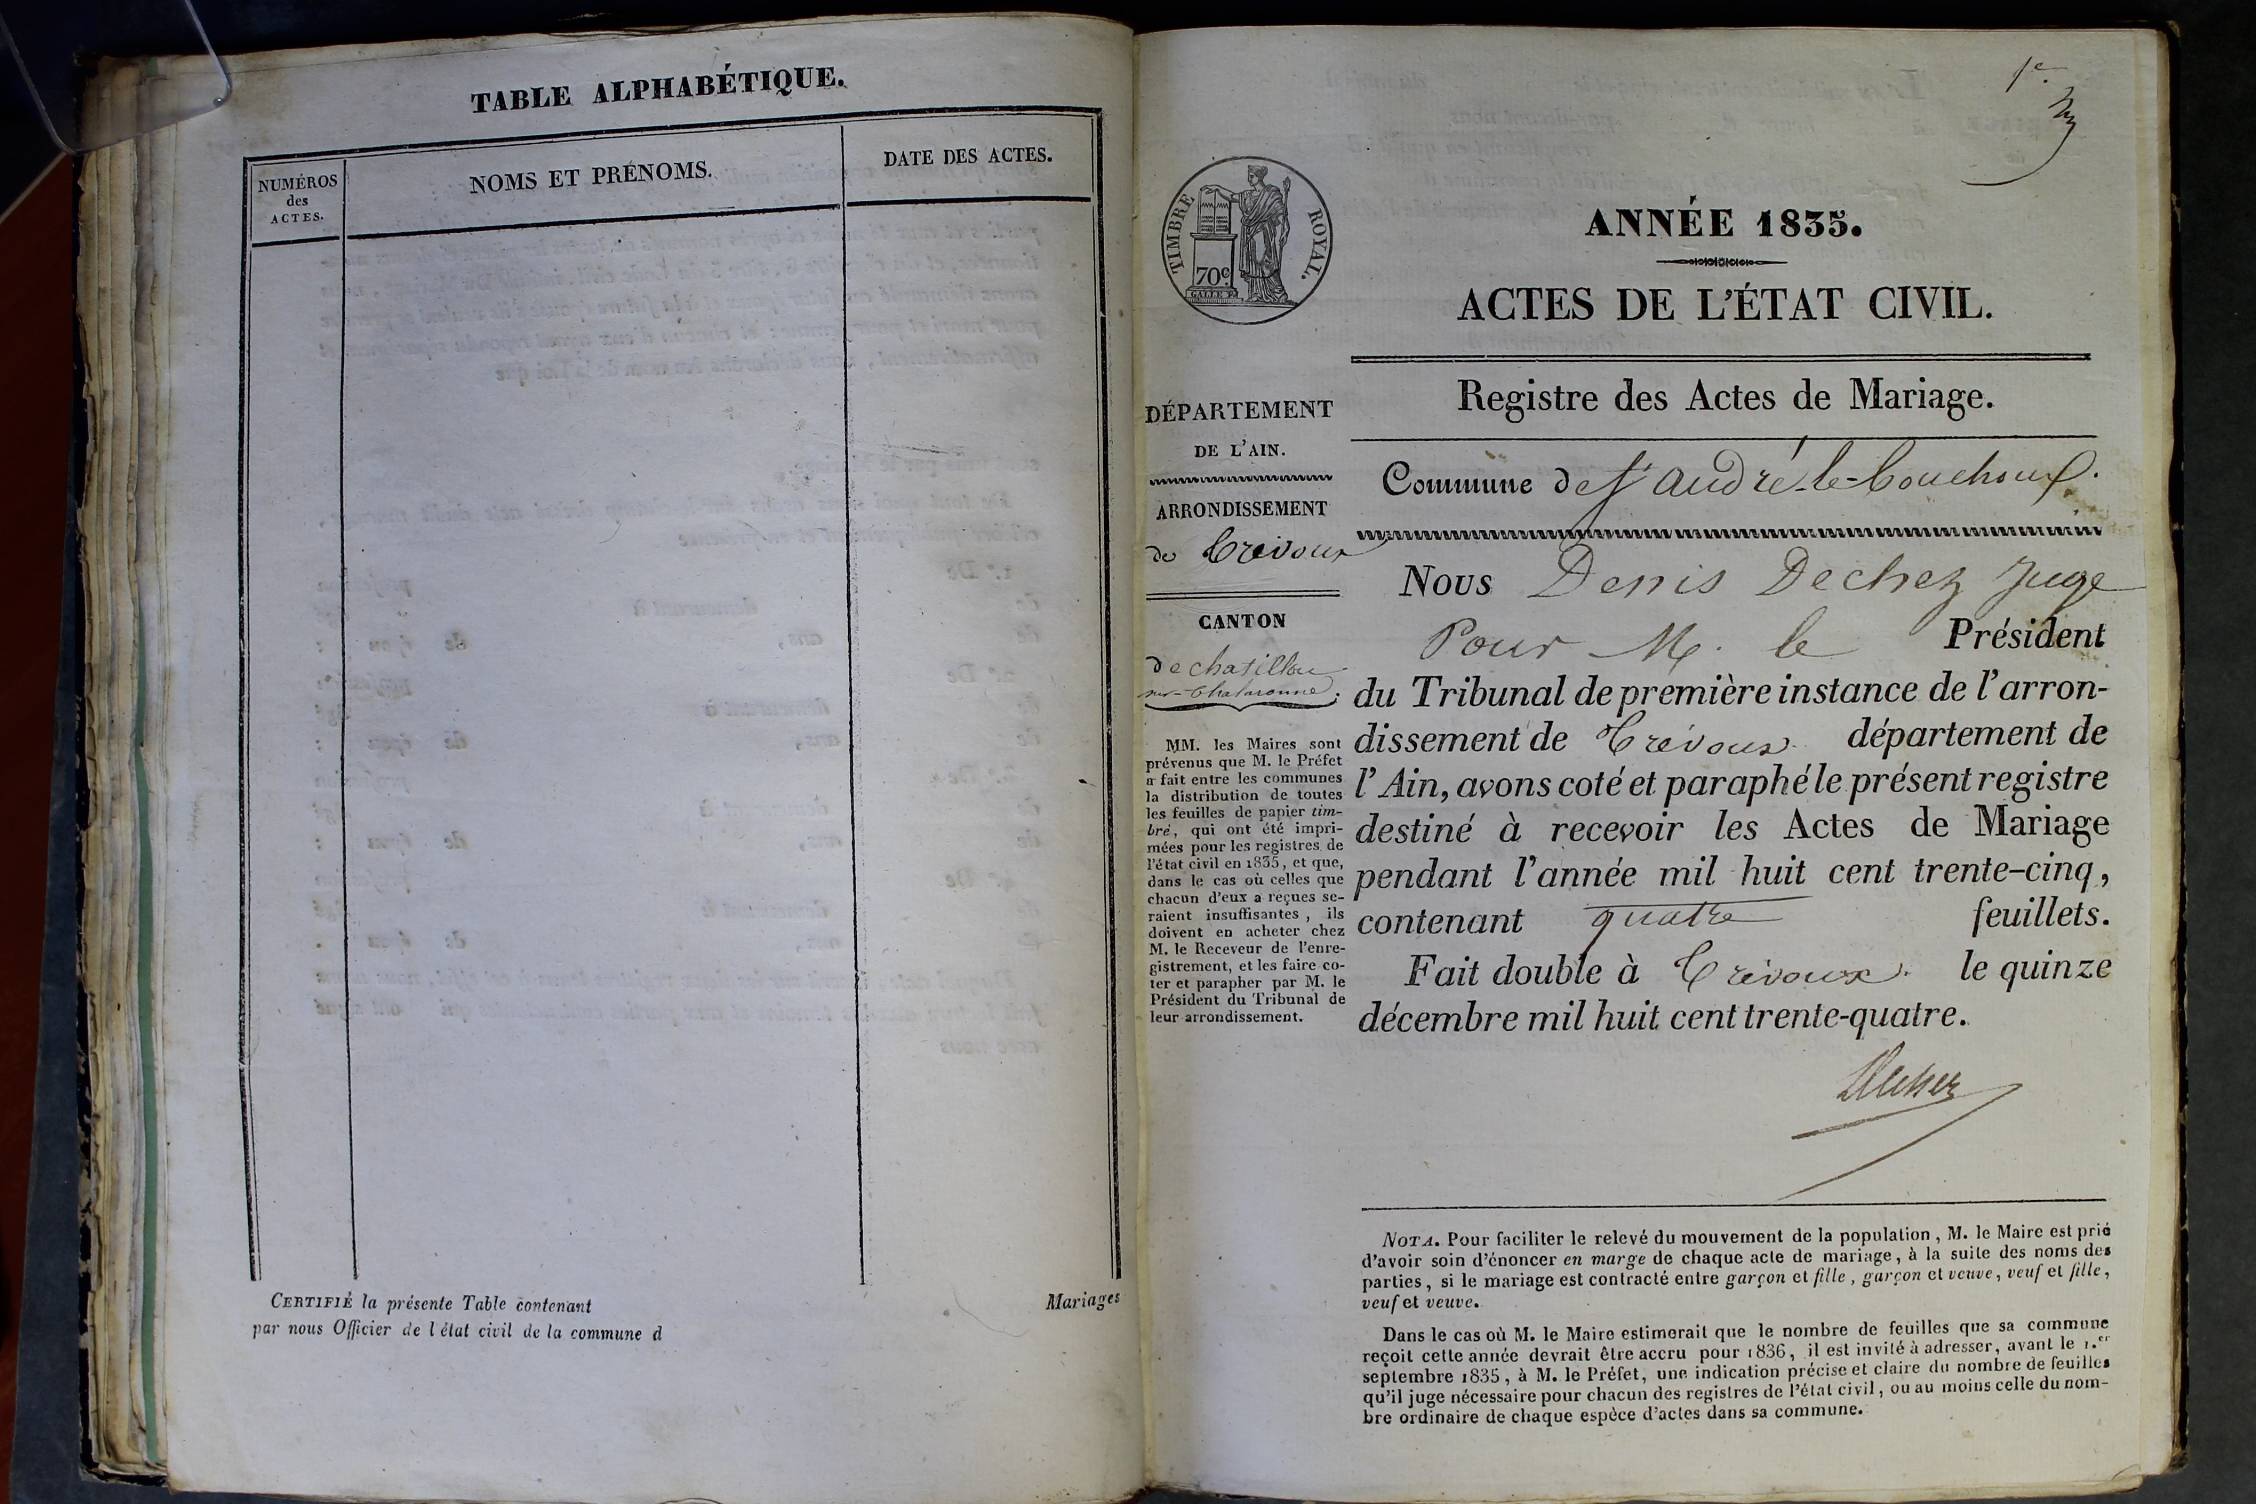 TABLE ALPHABÉTIQUE.
NUMÉROS
des
ACTES.
NOMS ET PRÉNOMS.
DATE DES ACTES.
CERTIFIÉ la présente Table contenant
Mariages
par nous Officier de l'état civil de la commune d
1.e
TIMBRE ROYAL.
70c.
ANNÉE 1835.
ACTES DE L'ÉTAT CIVIL.
Registre des Actes de Mariage.
DÉPARTEMENT
DE L'AIN.
ARRONDISSEMENT
de Trévoux
CANTON
de chatillon
sur-Chalaronne.
MM. les Maires sont
prévenus que M. le Préfet
a fait entre les communes
la distribution de toutes
les feuilles de papier tim-
bré, qui ont été impri-
mées pour les registres de
l'état civil en 1835, et que,
dans le cas où celles que
chacun d'eux a reçues se-
raient insuffisantes, ils
doivent en acheter chez
M. le Receveur de l'enre-
gistrement, et les faire co-
ter et parapher par M. le
Président du Tribunal de
leur arrondissement.
Commune de St André-le-Bouchoux.
Nous Denis Dechez Juge
Pour M. le Président
du Tribunal de première instance de l'arron-
dissement de Trévoux département de
l'Ain, avons coté et paraphé le présent registre
destiné à recevoir les Actes de Mariage
pendant l'année mil huit cent trente-cinq,
contenant quatre feuillets.
Fait double à Trévoux. le quinze
décembre mil huit cent trente-quatre.
Dechez
NOTA. Pour faciliter le relevé du mouvement de la population, M. le Maire est prié
d'avoir soin d'énoncer en marge de chaque acte de mariage, à la suite des noms des
parties, si le mariage est contracté entre garçon et fille, garçon et veuve, veuf et fille,
veuf et veuve.
Dans le cas où M. le Maire estimerait que le nombre de feuilles que sa commune
reçoit cette année devrait être accru pour 1836, il est invité à adresser, avant le 1.er
septembre 1835, à M. le Préfet, une indication précise et claire du nombre de feuilles
qu'il juge nécessaire pour chacun des registres de l'état civil, ou au moins celle du nom-
bre ordinaire de chaque espèce d'actes dans sa commune.